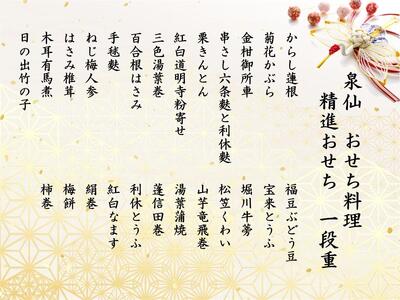 泉仙 おせち料理
精進おせち 一段重
からし蓮根
菊花かぶら
金柑御所車
串さし六条麩と利休麩
栗きんとん
紅白道明寺粉寄せ
三色湯葉巻
百合根はさみ
手毬麩
ねじ梅人参
はさみ椎茸
木耳有馬煮
日の出竹の子
福豆ぶどう豆
宝来とうふ
堀川牛蒡
松笠くわい
山芋竜飛巻
湯葉蒲焼
蓬信田巻
利休とうふ
紅白なます
絹巻
梅餅
柿巻